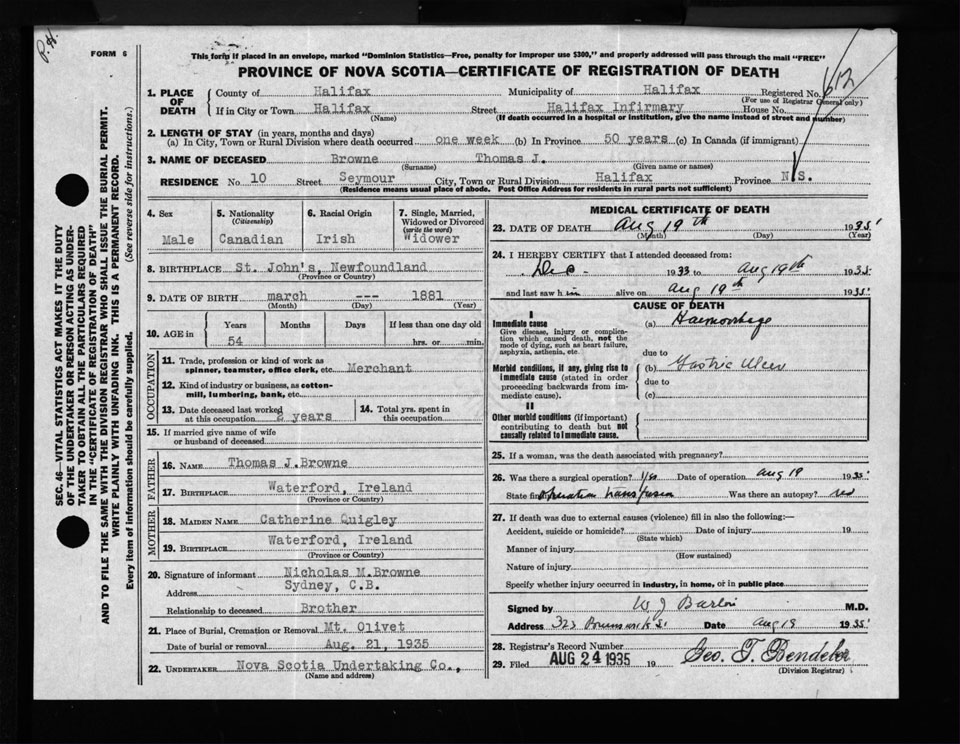 P. H.
FORM 6
This form if placed in an envelope, marked "Dominion Statistics—Free, penalty for improper use $300," and properly addressed will pass through the mail "FREE"
PROVINCE OF NOVA SCOTIA—CERTIFICATE OF REGISTRATION OF DEATH
612
SEC. 46—VITAL STATISTICS ACT MAKES IT THE DUTY
OF THE UNDERTAKER OR PERSON ACTING AS UNDER-
TAKER TO OBTAIN ALL THE PARTICULARS REQUIRED
IN THE "CERTIFICATE OF REGISTRATION OF DEATH"
AND TO FILE THE SAME WITH THE DIVISION REGISTRAR WHO SHALL ISSUE THE BURIAL PERMIT.
WRITE PLAINLY WITH UNFADING INK. THIS IS A PERMANENT RECORD.
Every item of information should be carefully supplied. (See reverse side for instructions.)
1. PLACE OF DEATH
County of Halifax Municipality of Halifax Registered No.
(For use of Registrar General only)
If in City or Town Halifax Street Halifax Infirmary House No.
(Name) (If death occurred in a hospital or institution, give the name instead of street and number)
2. LENGTH OF STAY (in years, months and days)
(a) In City, Town or Rural Division where death occurred one week (b) In Province 50 years (c) In Canada (if immigrant)
3. NAME OF DECEASED Browne Thomas J.
(Surname) (Given name or names)
RESIDENCE No. 10 Street Seymour City, Town or Rural Division Halifax Province N.S.
(Residence means usual place of abode. Post Office Address for residents in rural parts not sufficient)
4. Sex
Male
5. Nationality
(Citizenship)
Canadian
6. Racial Origin
Irish
7. Single, Married,
Widowed or Divorced
(write the word)
Widower
8. BIRTHPLACE St. John's, Newfoundland
(Province or Country)
9. DATE OF BIRTH march --- 1881
(Month) (Day) (Year)
10. AGE in Years Months Days If less than one day old
54 hrs. or min.
OCCUPATION
11. Trade, profession or kind of work as
spinner, teamster, office clerk, etc. Merchant
12. Kind of industry or business, as cotton-
mill, lumbering, bank, etc.
13. Date deceased last worked
at this occupation 2 years
14. Total yrs. spent in
this occupation
15. If married give name of wife
or husband of deceased
FATHER
16. NAME Thomas J.Browne
17. BIRTHPLACE Waterford, Ireland
(Province or Country)
MOTHER
18. MAIDEN NAME Catherine Quigley
19. BIRTHPLACE Waterford, Ireland
(Province or Country)
20. Signature of informant Nicholas M.Browne
Address Sydney, C.B.
Relationship to deceased Brother
21. Place of Burial, Cremation or Removal Mt. Olivet
Date of burial or removal Aug. 21, 1935
22. UNDERTAKER Nova Scotia Undertaking Co.,
(Name and address)
MEDICAL CERTIFICATE OF DEATH
23. DATE OF DEATH Aug 19th 1935
(Month) (Day) (Year)
24. I HEREBY CERTIFY that I attended deceased from:
Dec - 1933 to Aug 19th 1935
and last saw h im alive on Aug 19th 1935
CAUSE OF DEATH
I
Immediate cause
Give disease, injury or complica-
tion which caused death, not the
mode of dying, such as heart failure,
asphyxia, asthenia, etc.
(a) Haemorrhage
due to
Morbid conditions, if any, giving rise to
immediate cause (stated in order
proceeding backwards from im-
mediate cause).
(b) Gastric Ulcer
due to
(c)
II
Other morbid conditions (if important)
contributing to death but not
causally related to immediate cause.
25. If a woman, was the death associated with pregnancy?
26. Was there a surgical operation? Yes Date of operation Aug 19 1935
State findings transfusion Was there an autopsy? no
27. If death was due to external causes (violence) fill in also the following:—
Accident, suicide or homicide? Date of injury 19
(State which)
Manner of injury
(How sustained)
Nature of injury
Specify whether injury occurred in industry, in home, or in public place
Signed by W J Barton M.D.
Address 323 Brunswick St Date Aug 19 1935
28. Registrar's Record Number
29. Filed AUG 24 1935 19 Geo. T. Bendelor
(Division Registrar)